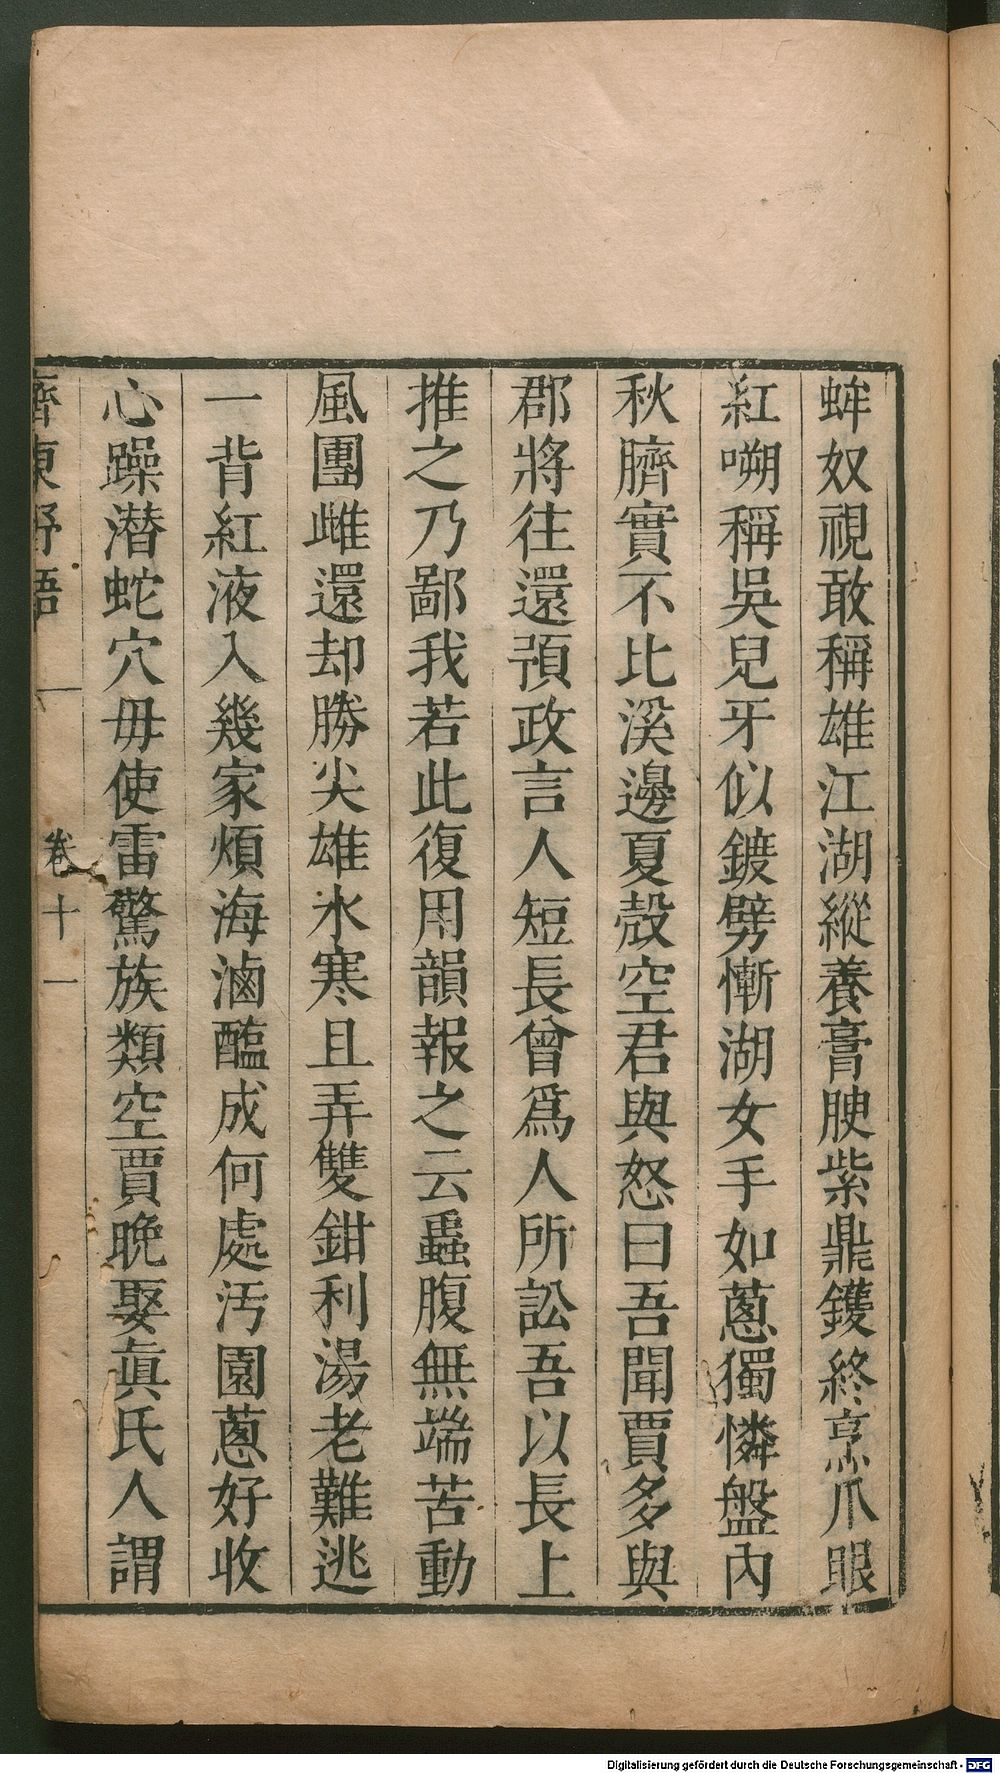 蛑奴視敢稱雄江湖縱養膏腴紫鼎鑊終烹爪眼
紅嗍稱吳兒牙似鍍劈慚湖女手如蔥獨憐盤內
秋臍實不比溪邊夏殼空君與怒曰吾聞賈多與
郡將往還預政言人短長曾爲人所訟吾以長上
推之乃鄙我若此復用韻報之云蟲腹無端苦動
風團雌還却勝尖雄水寒且弄雙鉗利湯老難逃
一背紅液入幾家煩海滷醢成何處汚園蔥好收
心躁潜蛇穴毋使雷驚族類空賈晚娶眞氏人謂
齊東野語
卷十一
Digitalisierung gefördert durch die Deutsche Forschungsgemeinschaft - DFG